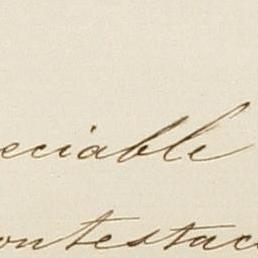 eciable
ontestac